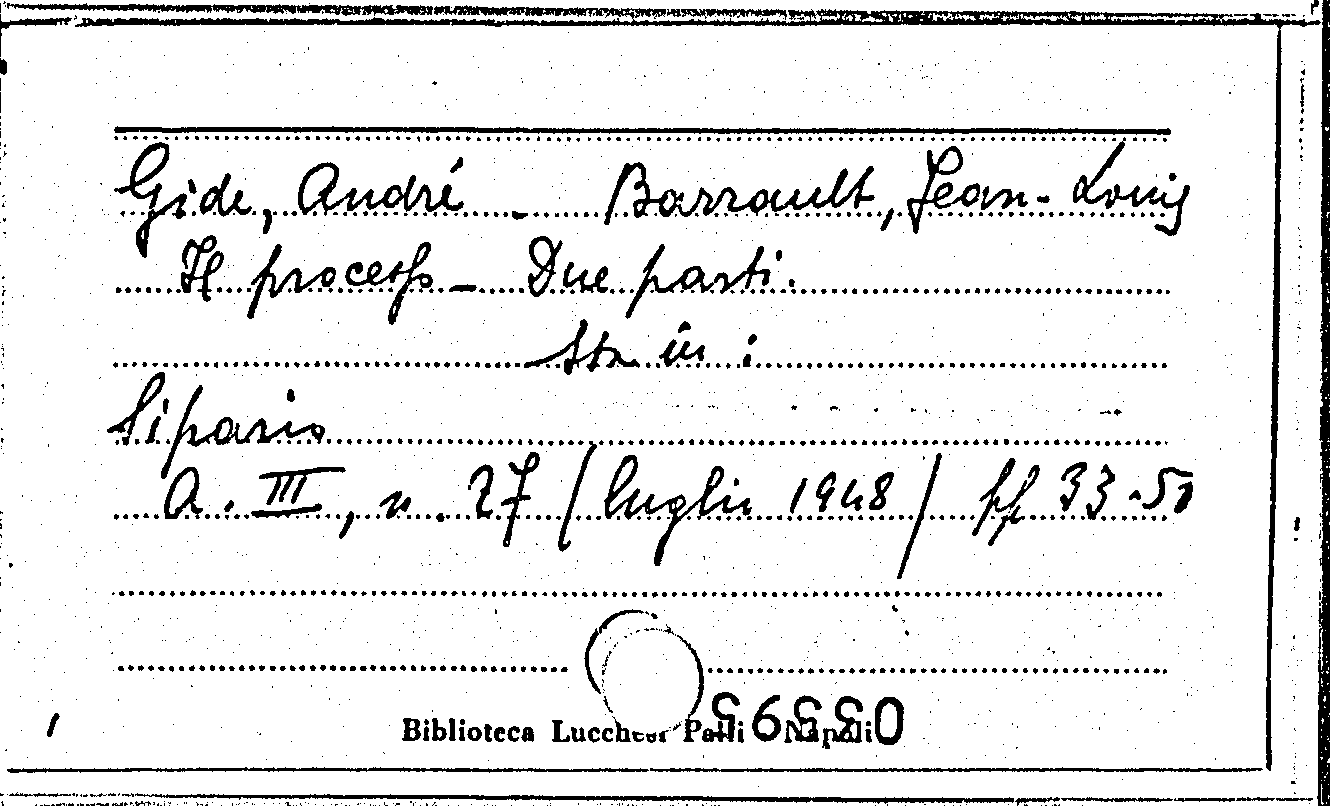 Gide, André - Barrault, Jean-Louis
Il processo - Due parti.
Sta in :
Sipario
A. III, n. 27 / luglio 1948 / pp 33-50
Biblioteca Lucchesi Palli Napoli